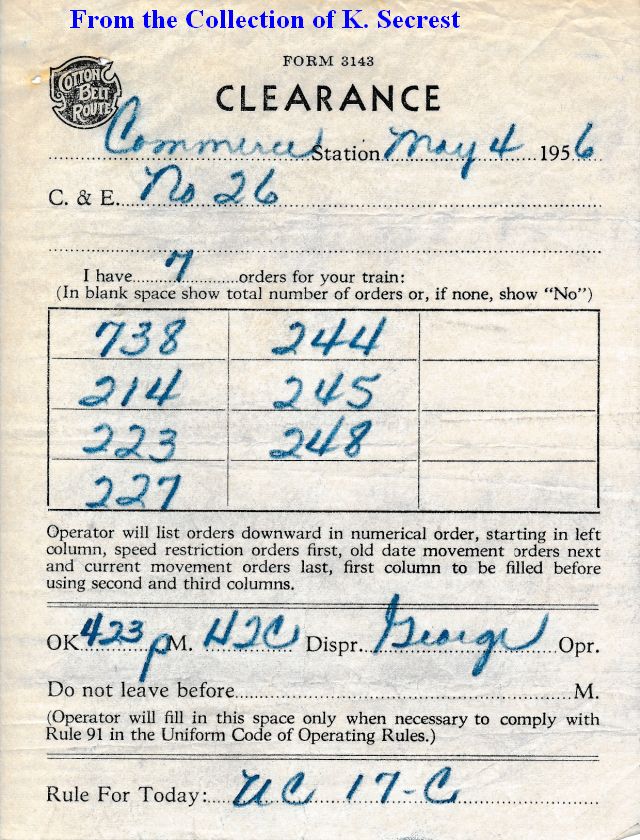 From the Collection of K. Secrest
FORM 3143
COTTON
BELT
ROUTE
CLEARANCE
Commerce Station May 4 1956
C. & E. No 26
I have 7 orders for your train:
(In blank space show total number of orders or, if none, show “No”)
738 244
214 245
223 248
227
Operator will list orders downward in numerical order, starting in left
column, speed restriction orders first, old date movement orders next
and current movement orders last, first column to be filled before
using second and third columns.
OK 423 pM. Dispr. George Opr.
Do not leave before M.
(Operator will fill in this space only when necessary to comply with
Rule 91 in the Uniform Code of Operating Rules.)
Rule For Today: UC 17-C